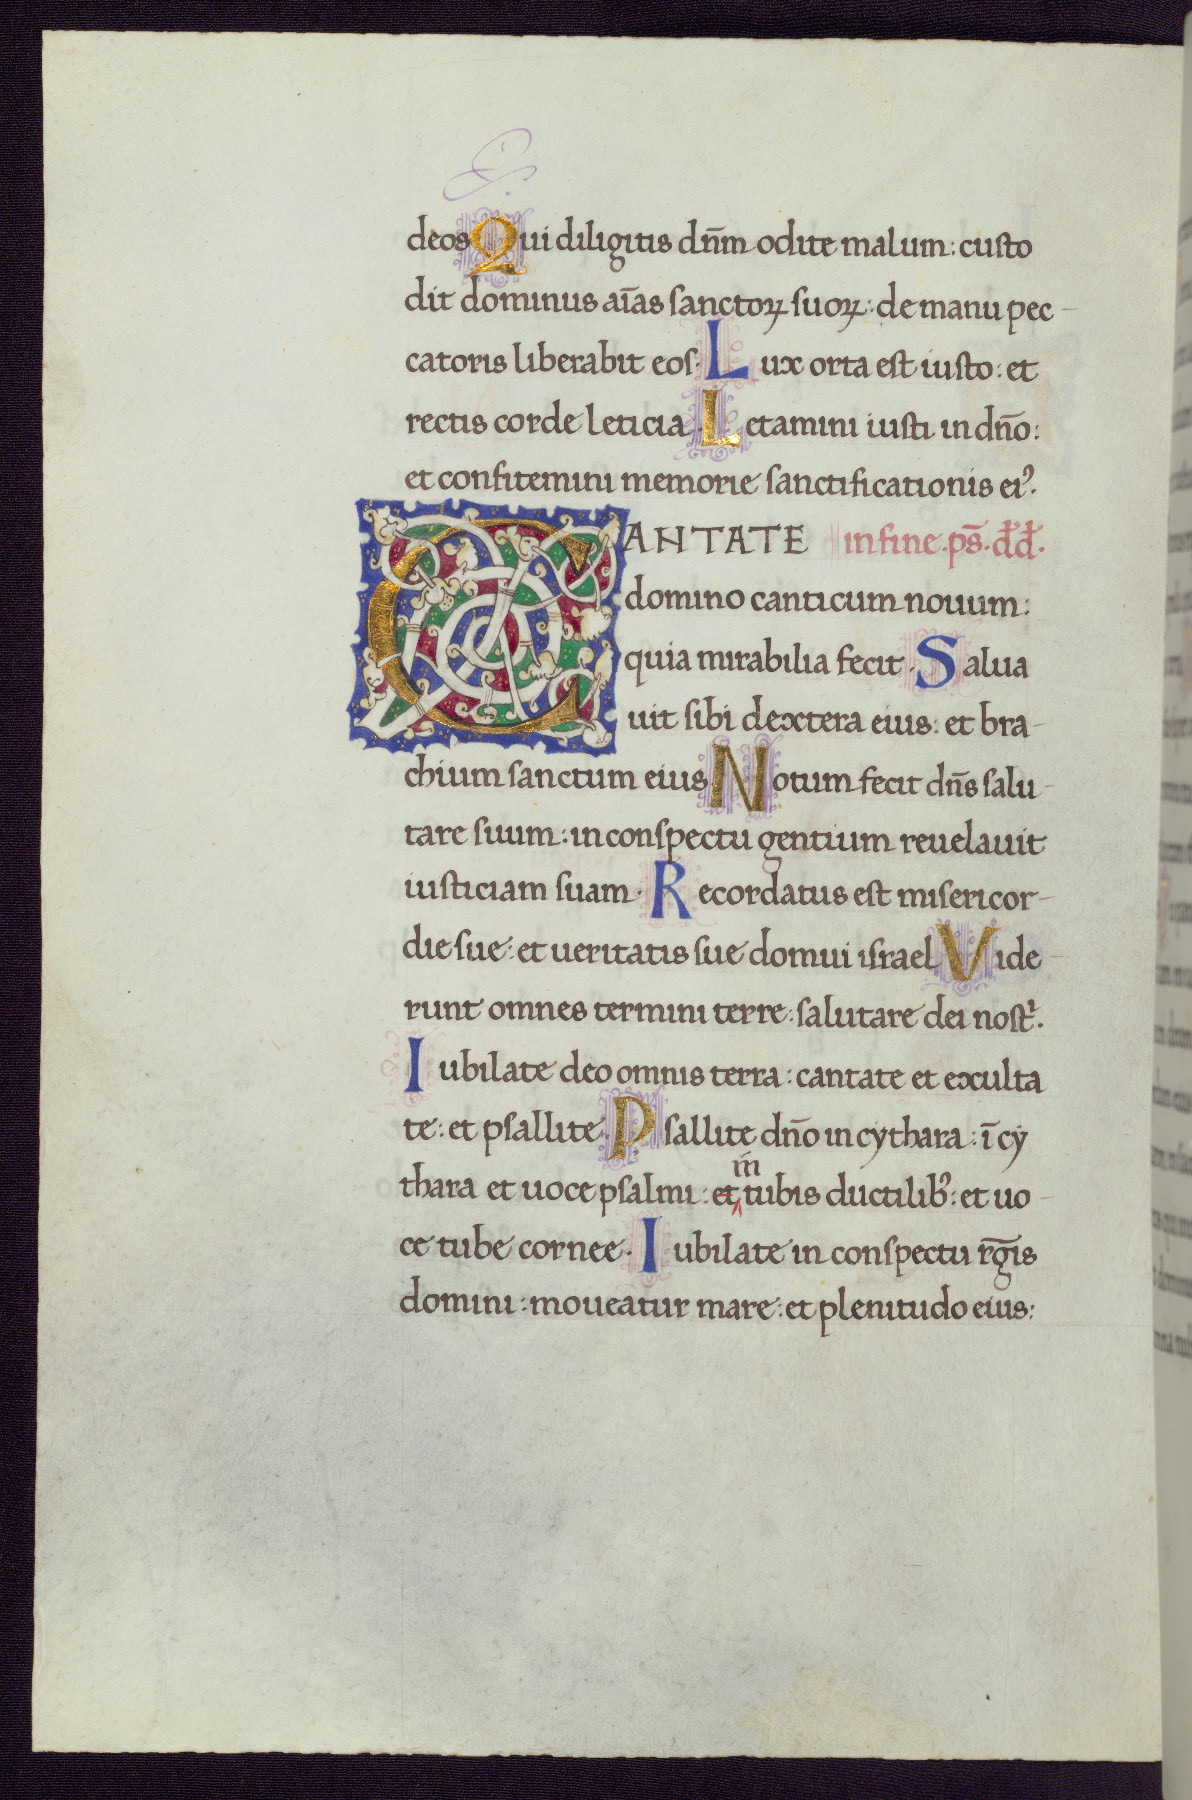 deos Qui diligitis dn̄m odite malum: custo
dit dominus aīas sanctoꝝ suoꝝ: de manu pec-
catoris liberabit eos. Lux orta est iusto: et
rectis corde leticia. Letamini iusti in dn̄o:
et confitemini memorie sanctificationis ei᾿.
CANTATE in fine .ps̄. d̄d̄.
domino canticum nouum:
quia mirabilia fecit. Salua
uit sibi dextera eius: et bra-
chium sanctum eius Notum fecit dn̄s salu-
tare suum: in conspectu gentium reuelauit
iusticiam suam. Recordatus est misericor-
die sue: et ueritatis sue domui israel Vide-
runt omnes termini terre: salutare dei nost͛.
Iubilate deo omnis terra: cantate et exulta
te: et psallite. Psallite dn̄o in cythara: ī cy
thara et uoce psalmi: et in tubis ductilib᾿: et uo-
ce tube cornee. Iubilate in conspectu r̄gis
domini: moueatur mare: et plenitudo eius: